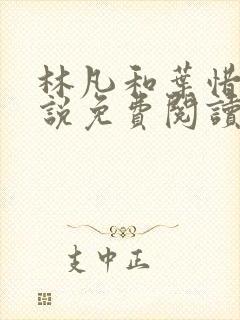 林凡和葉惜
說免費閱讀
支中正